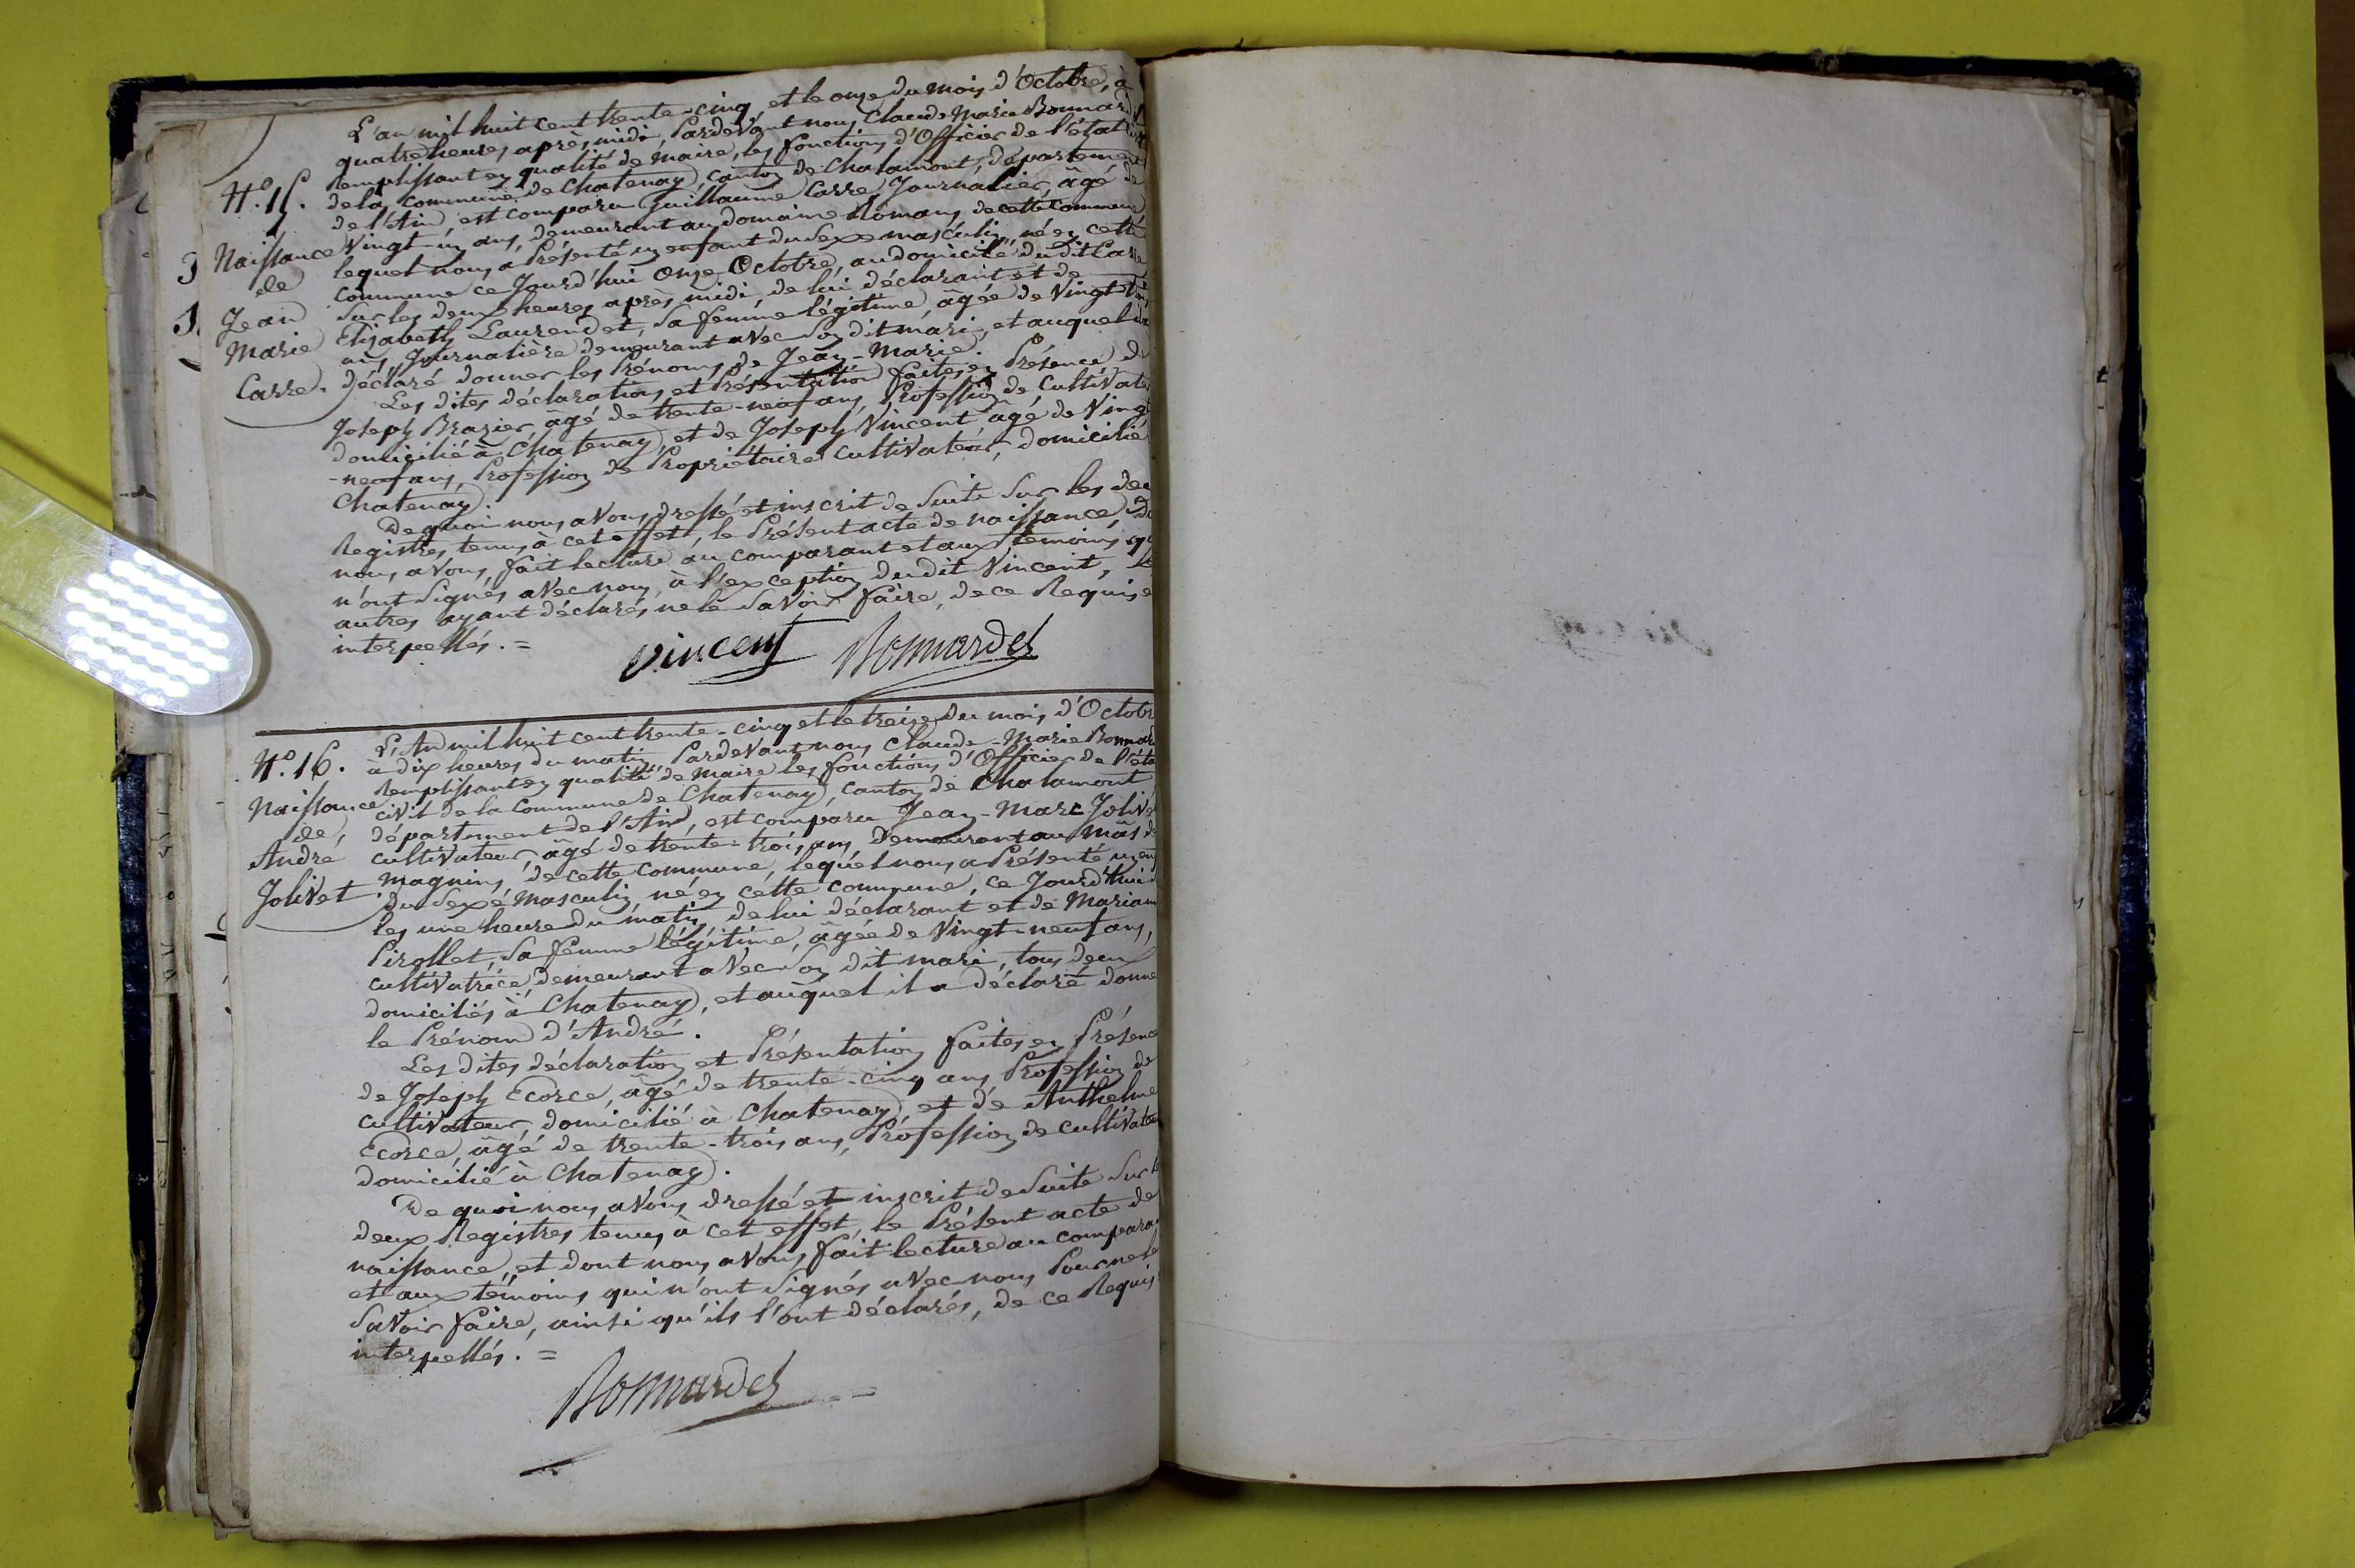 L'an mil huit cent trente-cinq et le onze du mois d'Octobre, à
quatre heures après midi, Pardevant nous Claude Marie Bonnardel
Remplissant en qualité de Maire, les fonctions d'Officier de l'état
N.° 15. de la commune de Chatenay, canton de Chalamont, département
de l'Ain, est comparu Guillaume Carre Journalier, âgé de
Naissance Vingt-un ans, demeurant au domaine Romans de cette commune
lequel nous a Présenté un enfant du Sexe masculin, né en cette
de commune ce Jourd'hui Onze Octobre, au domicile du dit Carre
Jean Sur les deux heures après midi, de lui déclarant et de
Marie Elizabeth Laurendet, Sa femme légitime, âgée de Vingt
ans, Journalière demeurant avec Son dit mari, et auquel il a
Carre. déclaré donner les Prénoms de Jean-Marie.
Les dites déclaration et Présentation faites en Présence de
Joseph Brazier, âgé de trente-neuf ans, Profession de Cultivate
domicilié à Chatenay, et de Joseph Vincent âgé de Vingt
-neuf ans, Profession de Propriétaire Cultivateur, domicilié
Chatenay.
De quoi nous avons dressé et inscrit de Suite Sur les deu
Registres tenus à cet effet, le Présent acte de naissance, Do
nous avons fait lecture au comparant et aux témoins, qu
n'ont Signés avec nous, à l'exception du dit Vincent, Le
autres ayant déclarés ne le Savoir faire, de ce Requis e
interpellés. =
Vincent Bonnardel
L'An mil huit cent trente-cinq et le treize du mois d'Octobr
N.° 16. à dix heures du matin, Pardevant nous Claude-Marie Bonnard
Remplissant en qualité de Maire les fonctions d'Officier de l'éta
Naissance civil de la Commune de Chatenay, canton de Chalamont
de département de l'Ain, est comparu Jean-Marc Jolive
André cultivateur, âgé de trente-trois ans, Demeurant au Mas de
Magnins, de cette commune, lequel nous a Présenté un enf
Jolivet. du Sexe Masculin, né en cette commune, ce Jourd'hui
les une heure du matin, de lui déclarant et de Mariann
Pirollet, Sa femme légitime, âgée de Vingt-neuf ans,
cultivatrice, demeurant avec Son dit mari, tous deux
domiciliés à Chatenay, et auquel il a déclaré donne
le Prénom d'André.
Les dites déclaration et Présentation faites en Présence
de Joseph Ecorce, âgé de trente-cinq ans Profession de
Cultivateur, domicilié à Chatenay, et de Anthelme
Ecorce, âgé de trente-trois ans, Profession de Cultivateu
domicilié à Chatenay.
De quoi nous avons dressé et inscrit de Suite Sur l
deux Registres tenus à cet effet, le Présent acte de
naissance, et dont nous avons fait lecture au compara
et aux témoins qui n'ont Signés avec nous Pour ne le
Savoir faire, ainsi qu'ils l'ont déclarés, de ce Requis
interpellés. =
Bonnardel